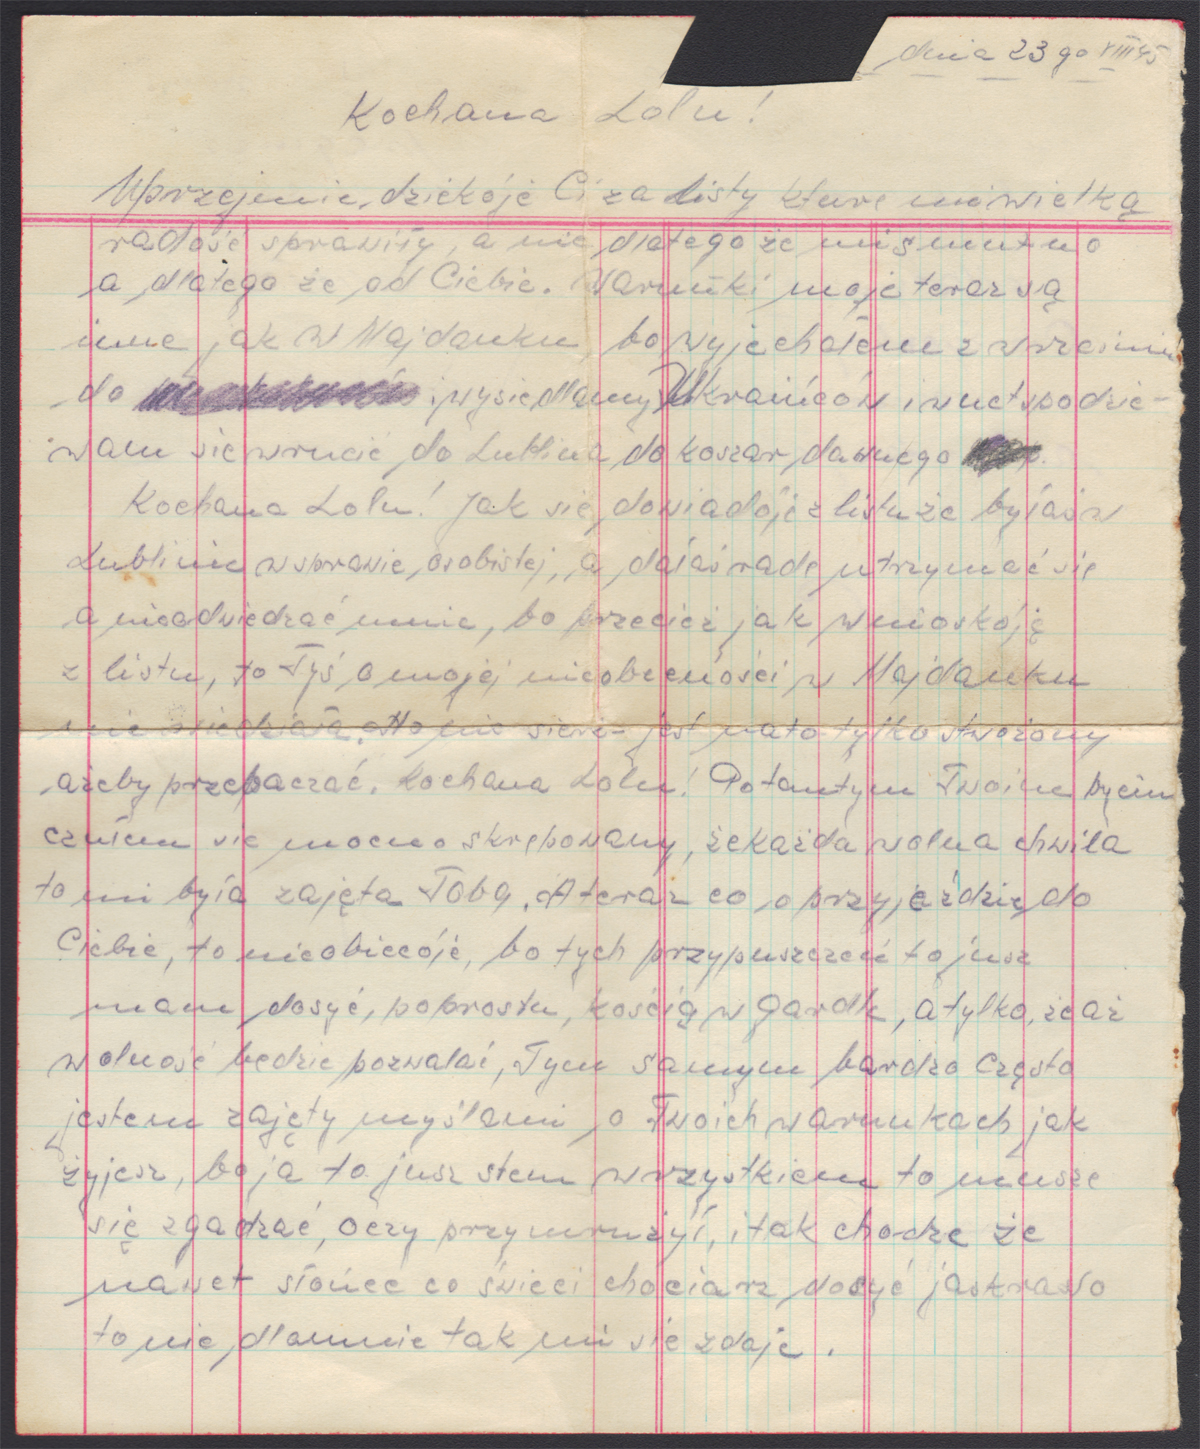 dnia 23 go VIII 45
Kochana Lolu!
Uprzejmie dziękóję Ci za listy kture mi wielką
radość sprawiły, a nie dlatego że mi smutno
a dlatego że od Ciebie. Warunki moje teraz są
inne jak w Majdanku, bo wyjechałem z
do i wysiedlamy Ukraińców, i wnet spodzie-
wam się wrucić do Lublina do koszar dawnego
Kochana Lolu! Jak się dowiadóję z listu że byłaś w
Lublinie w sprawie osobistej, a dałaś radę utrzymać się
a nieodwiedzać mnie, bo przecież jak wnioskóję
z listu, to Tyś o mojej nieobecności w Majdanku
nie wiedziała. Ale nic jest na to tylko stwożony
ażeby przebaczać. Kochana Lolu! Po tamtym Twoim byciu
czułem się mocno skrępowany, że każda wolna chwila
to mi była zajęta Tobą. A teraz co o przyjeździe do
Ciebie, to nieobiecóję, bo tych przypuszczeń to jusz
mam dosyć, poprostu, kością w gardle, a tylko, że aż
wolność będzie pozwalać, Tym samym bardzo często
jestem zajęty myślami o Twoich warunkach jak
żyjesz, bo ja to jusz stem wrzystkiem to musze
się zgadzać, oczy przymrużyć, i tak chodze że
nawet słońce co świeci chociarz dosyć jaskrawo
to nie dlamnie tak mi się zdaje.